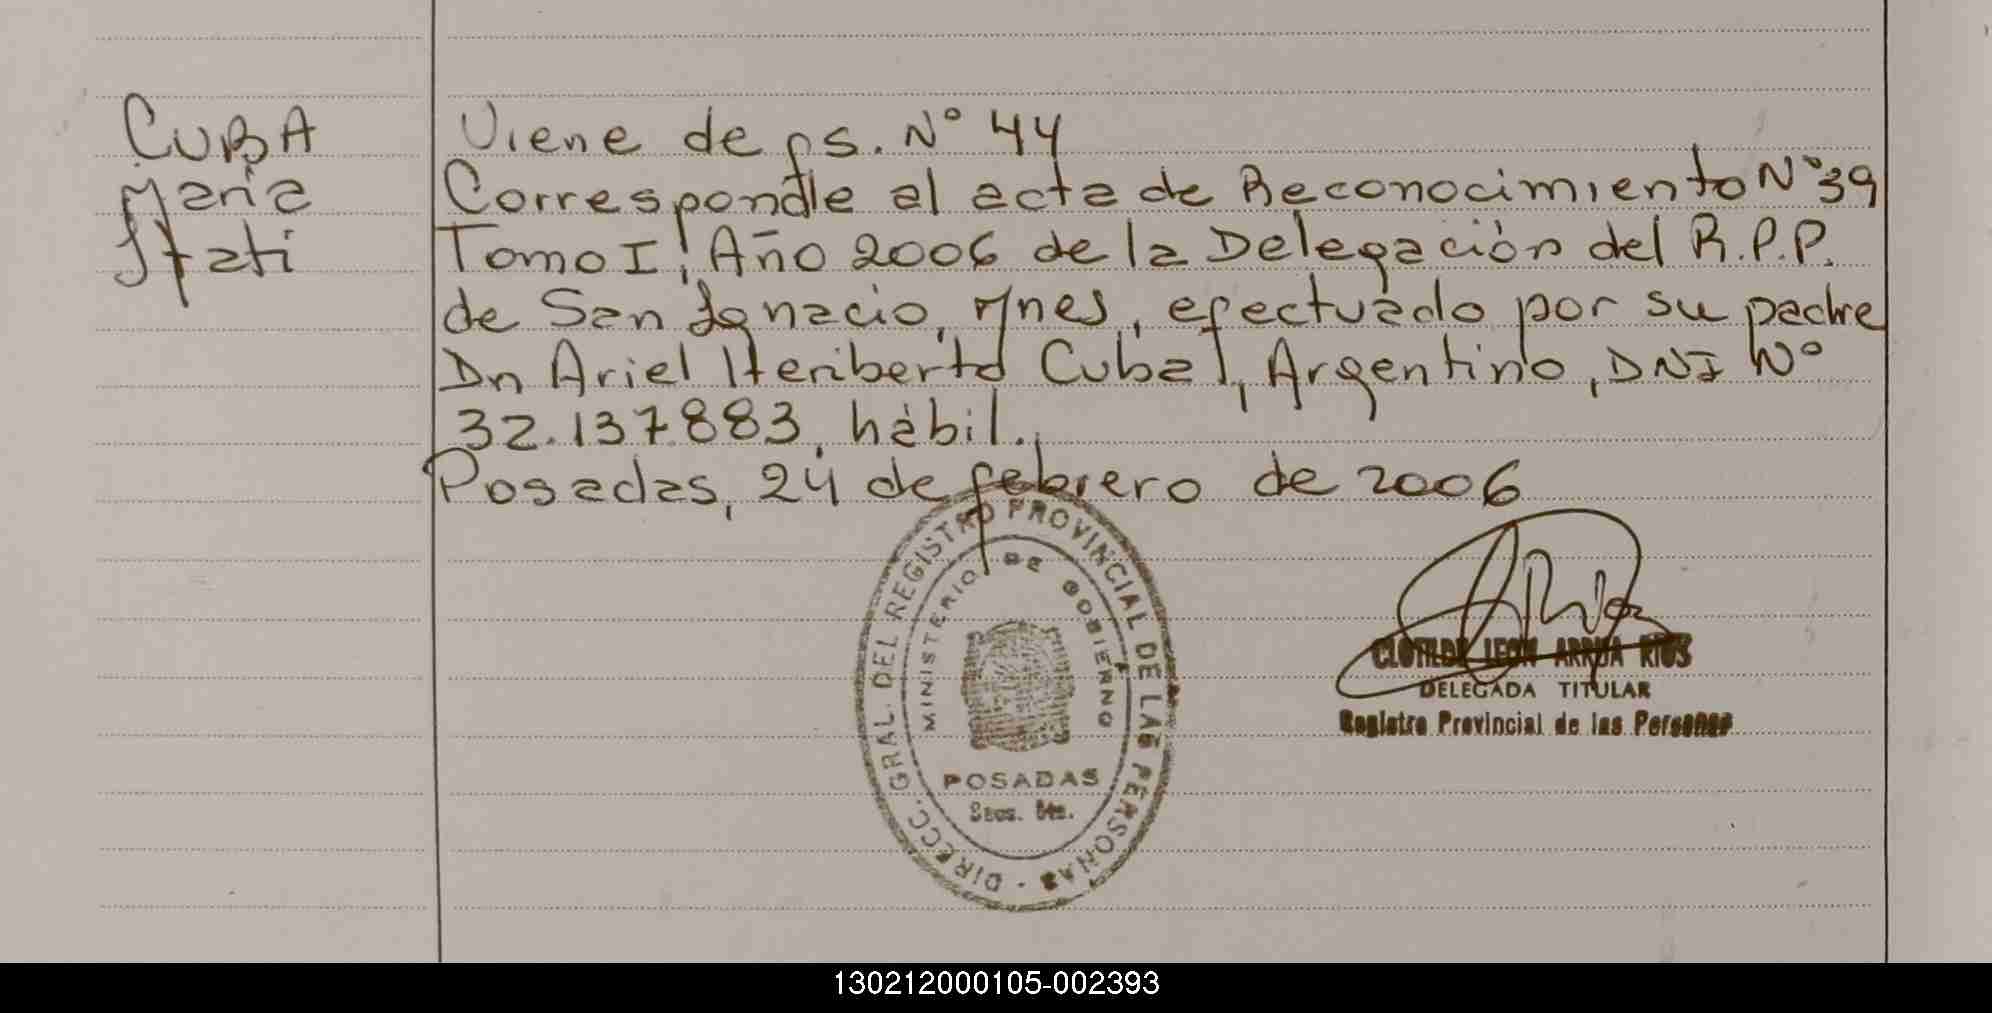 CUBA
Maria
Itati
Viene de fs. Nº 44
Corresponde al acta de Reconocimiento Nº 39
Tomo I, Año 2006 de la Delegación del R.P.P.
de San Ignacio, Mnes, efectuado por su padre
Dn Ariel Heriberto Cuba, Argentino, DNI Nº
32.137.883, hábil.
Posadas, 24 de febrero de 2006
DIRECC. GRAL. DEL REGISTRO PROVINCIAL DE LAS PERSONAS
MINISTERIO DE GOBIERNO
POSADAS
CLOTILDE LEON ARRUA RIOS
DELEGADA TITULAR
Registro Provincial de las Personas
130212000105-002393